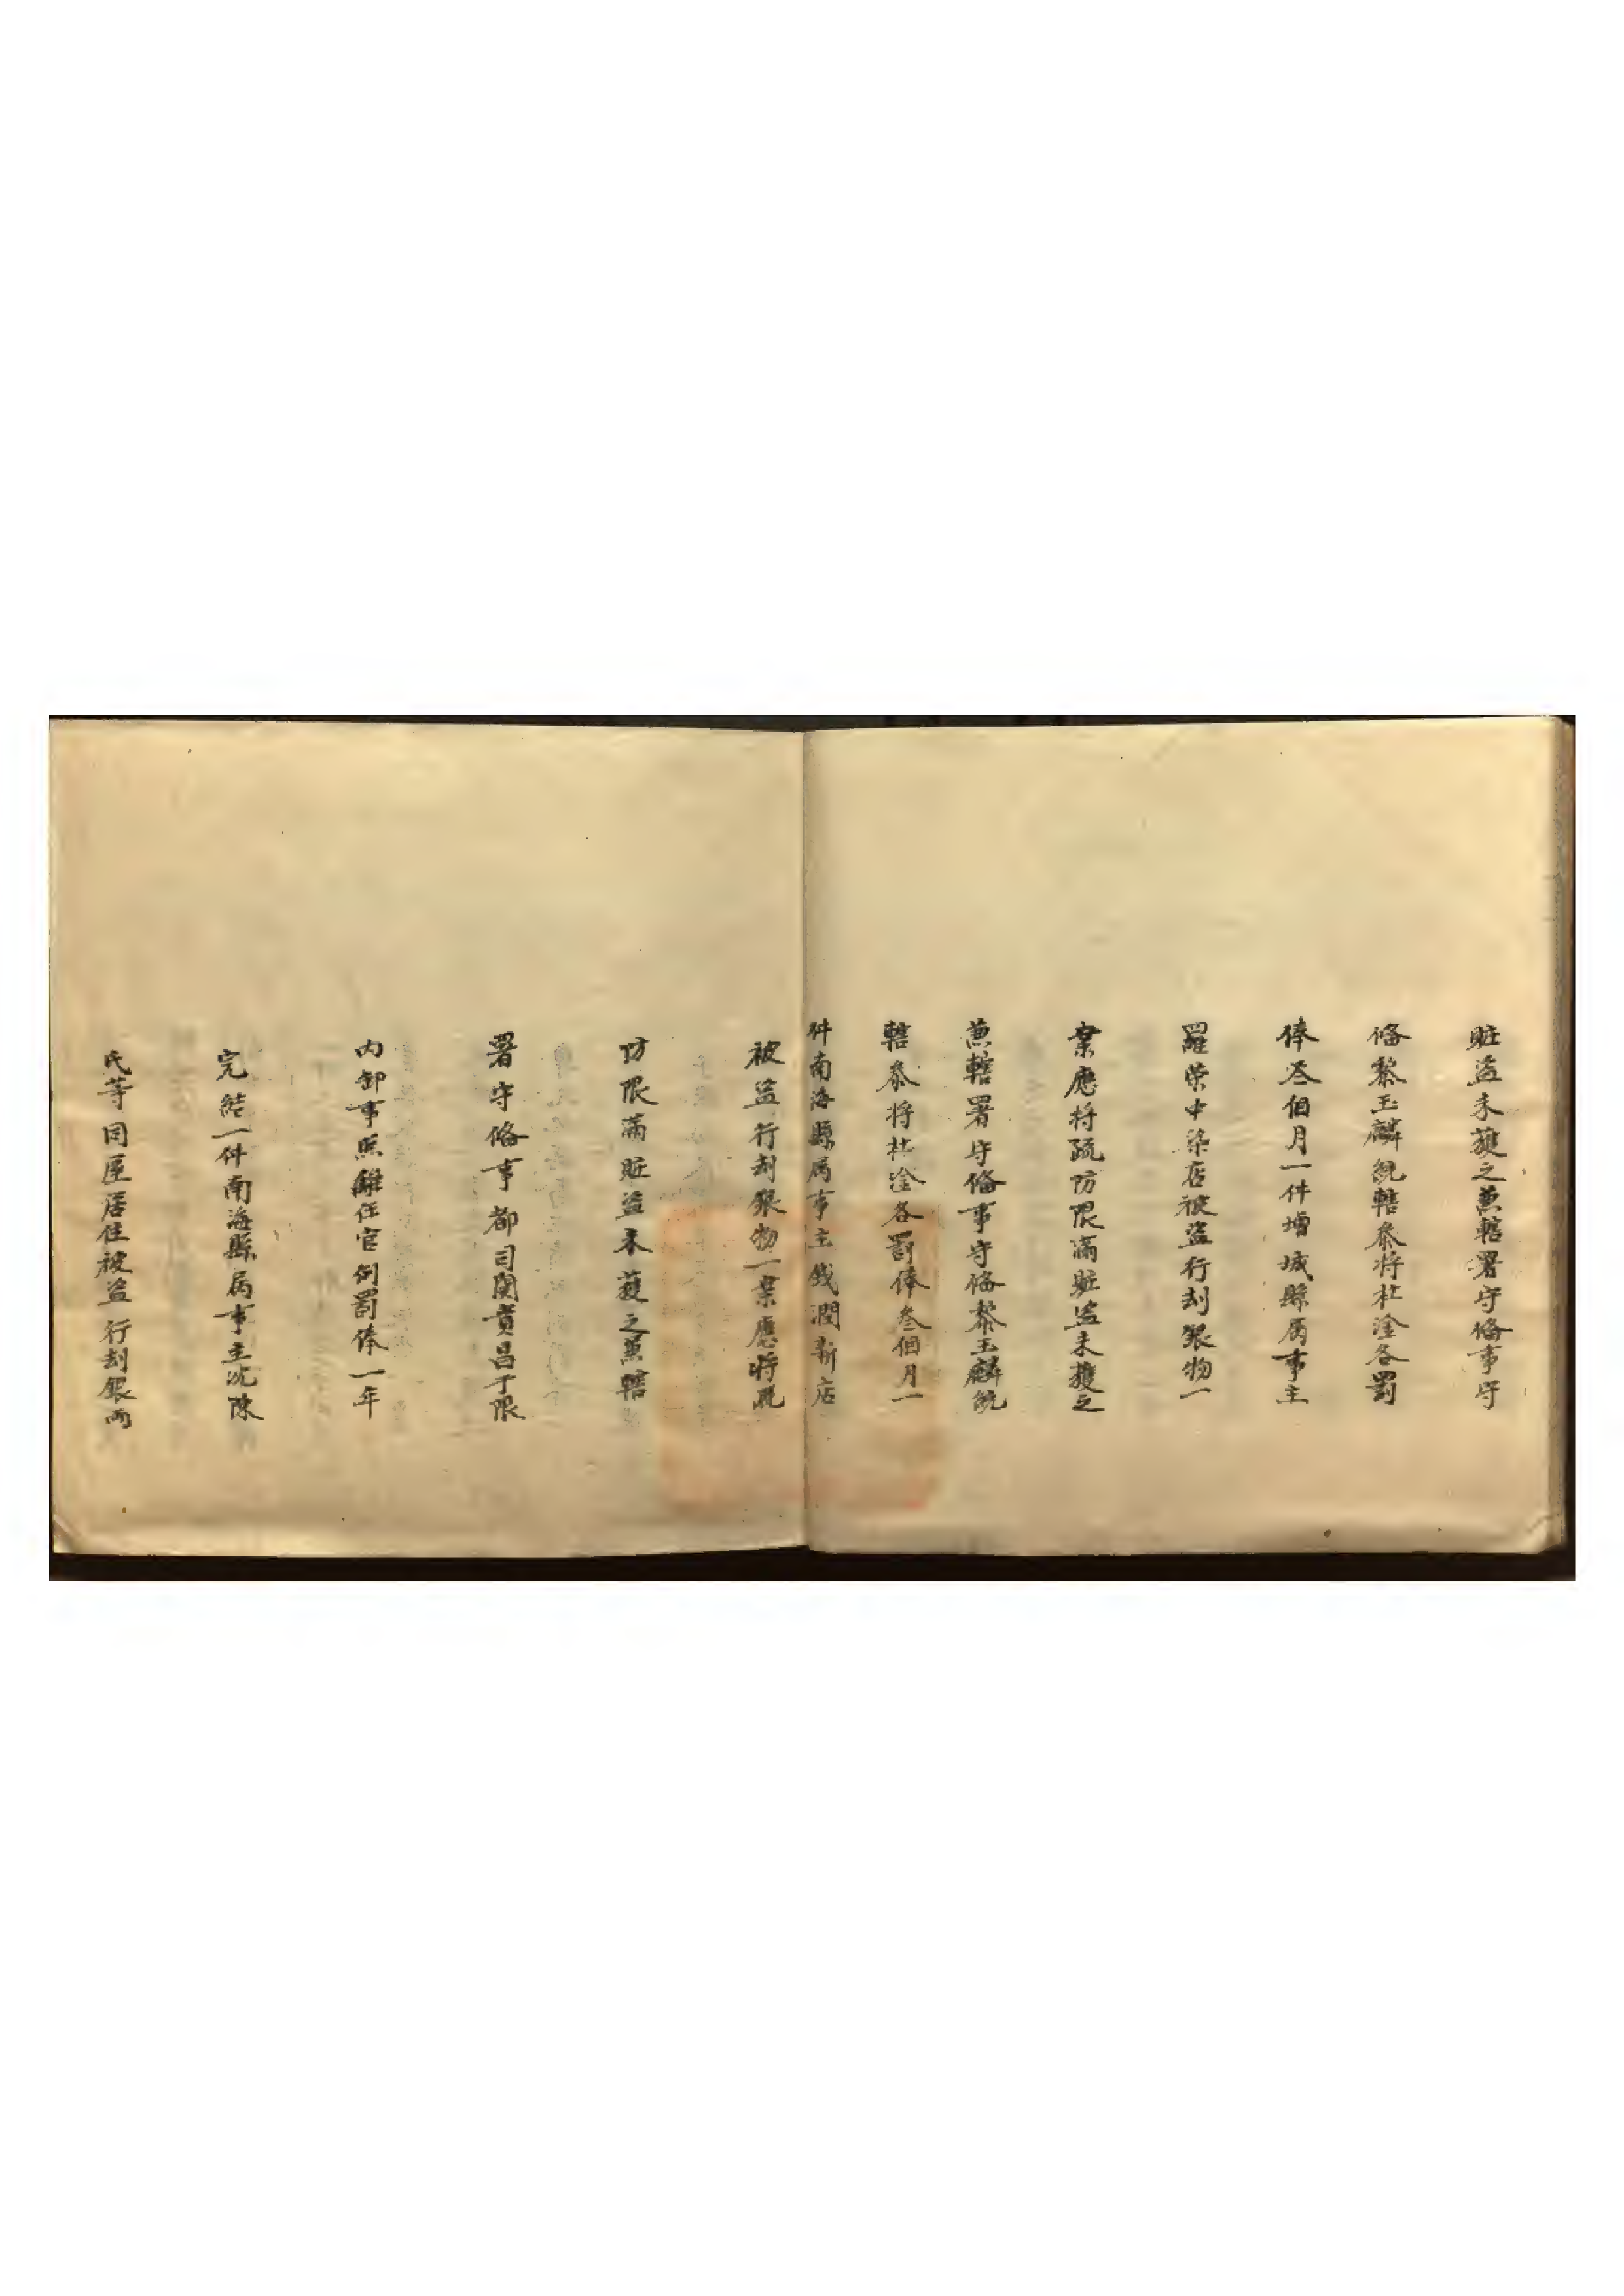 賍盗未獲之兼轄署守俻事守
俻黎玉麟統轄叅将杜淦各罰
俸叁個月一件增城縣属事主
羅荣中染店被盗行刦銀物一
案應将疏防限滿賍盗未獲之
兼轄署守俻事守俻黎玉麟統
轄叅将杜淦各罰俸叁個月一
件南海縣属事主錢潤新店
被盗行刦銀物一案應将疏
防限滿賍盗未獲之兼轄
署守俻事都司関貴昌于限
内卸事照離任官例罰俸一年
完結一件南海縣属事主沈陳
氏等同屋居住被盗行刦銀両